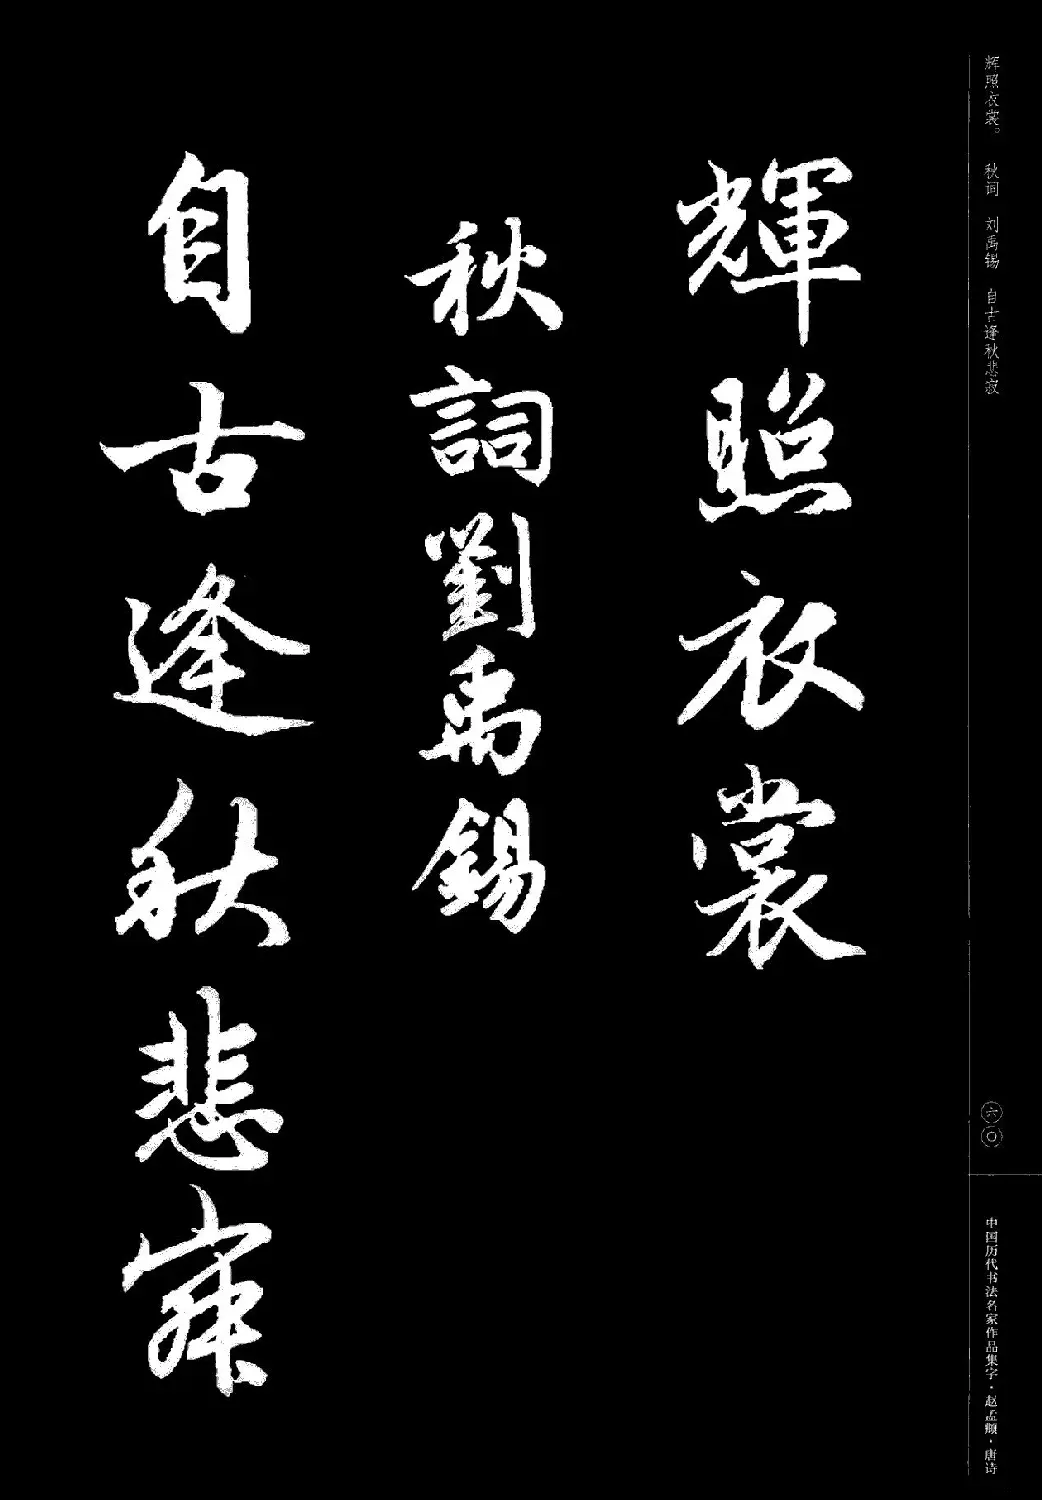 輝照衣裳
秋詞劉禹錫
自古逢秋悲寂
辉照衣裳。 秋词 刘禹锡 自古逢秋悲寂
六〇
中国历代书法名家作品集字·赵孟頫·唐诗